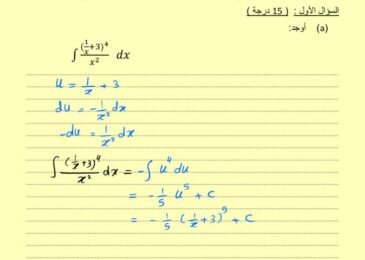 السؤال الأول : ( 15 درجة )
(a) أوجد:
∫ (1/x +3)^4 / x^2 dx
u = 1/x + 3
du = - 1/x^2 dx
-du = 1/x^2 dx
∫ (1/x +3)^4 / x^2 dx = -∫ u^4 du
= - 1/5 u^5 + c
= - 1/5 (1/x +3)^5 + c